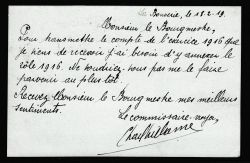 La Bouverie, le 18-2-19.
Monsieur le Bourgmestre,
Pour transmettre le compte de l'exercice 1916 que
je viens de recevoir j'ai besoin d'y annexer le
rôle 1916. Ne voudriez-vous pas me le faire
parvenir au plus tôt.
Recevez Monsieur le Bourgmestre mes meilleurs
sentiments.
Le commissaire-voyer,